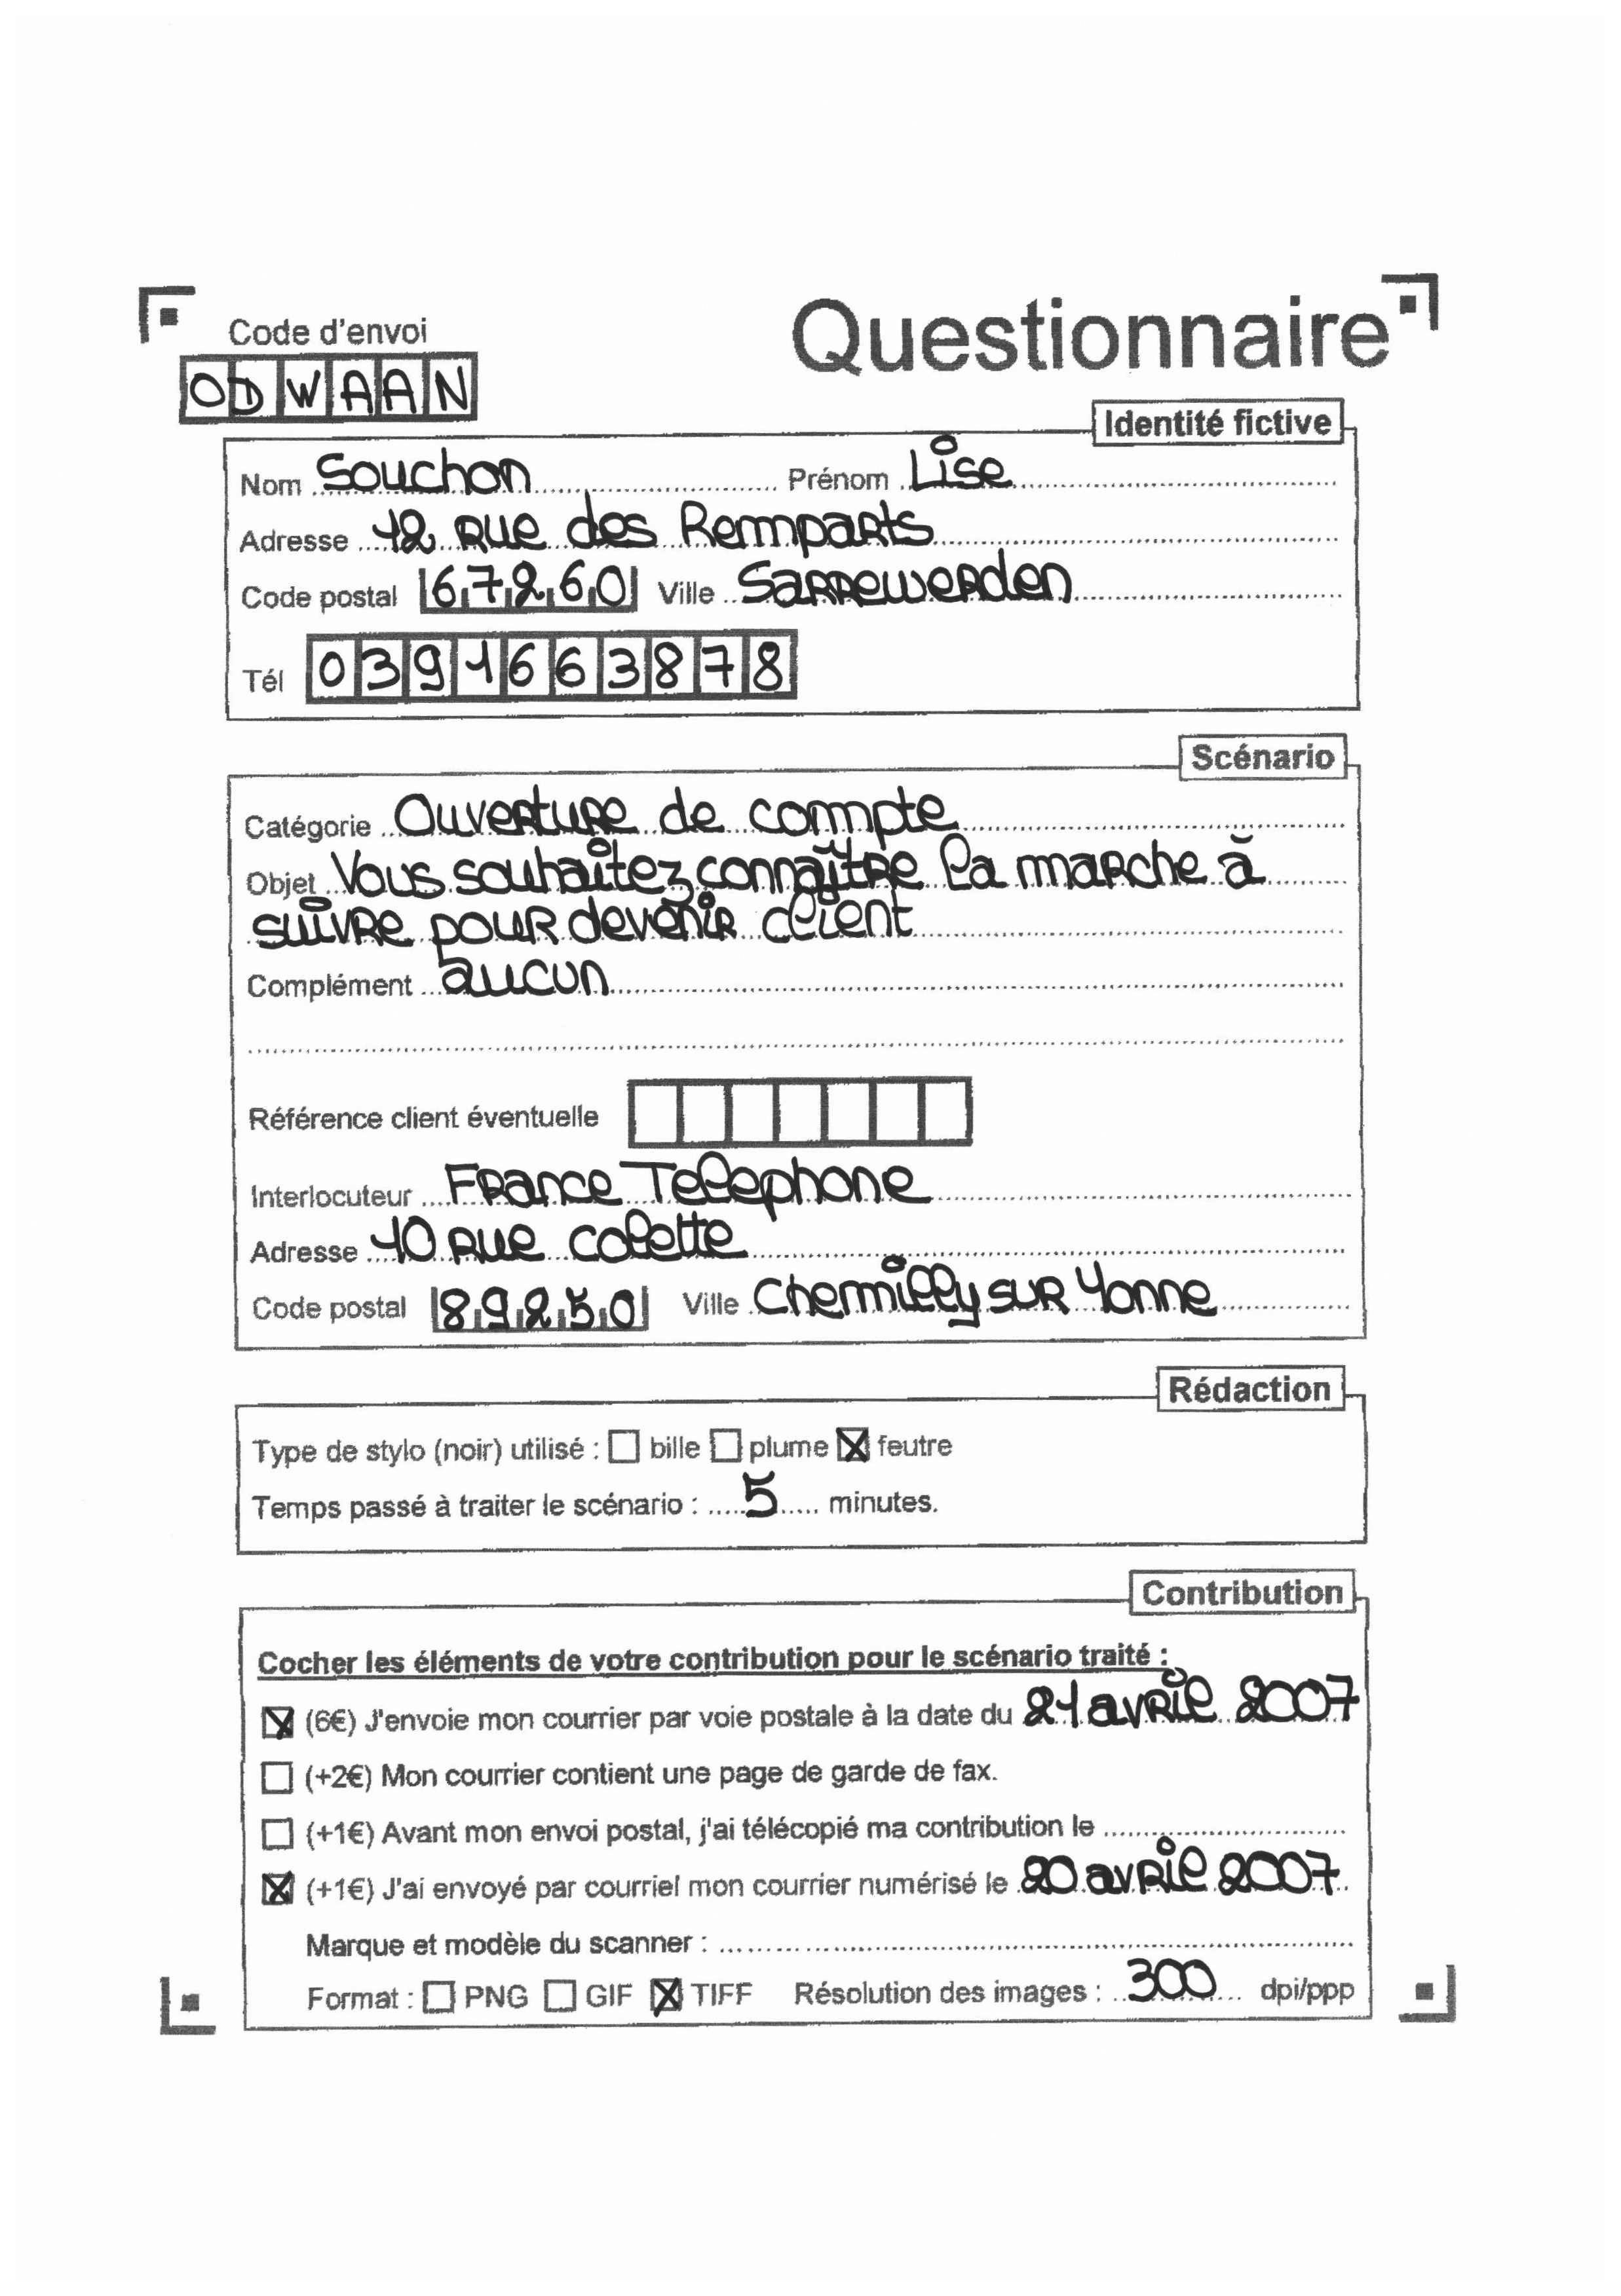 Questionnaire
Code d'envoi
ODWAAN
Identité fictive
Nom Souchon Prénom Lise
Adresse 12 rue des Remparts
Code postal 67260 Ville Sarrewerden
Tél 0391663878
Scénario
Catégorie Ouverture de compte
Objet Vous souhaitez connaître la marche à
suivre pour devenir client
Complément aucun
Référence client éventuelle
Interlocuteur France Telephone
Adresse 10 rue colette
Code postal 89250 Ville Chemilly sur Yonne
Rédaction
Type de stylo (noir) utilisé : ☐ bille ☐ plume ☒ feutre
Temps passé à traiter le scénario : 5 minutes.
Contribution
Cocher les éléments de votre contribution pour le scénario traité :
☒ (6€) J'envoie mon courrier par voie postale à la date du 21 avril 2007
☐ (+2€) Mon courrier contient une page de garde de fax.
☐ (+1€) Avant mon envoi postal, j'ai télécopié ma contribution le
☒ (+1€) J'ai envoyé par courriel mon courrier numérisé le 20 avril 2007
Marque et modèle du scanner :
Format : ☐ PNG ☐ GIF ☒ TIFF Résolution des images : 300 dpi/ppp